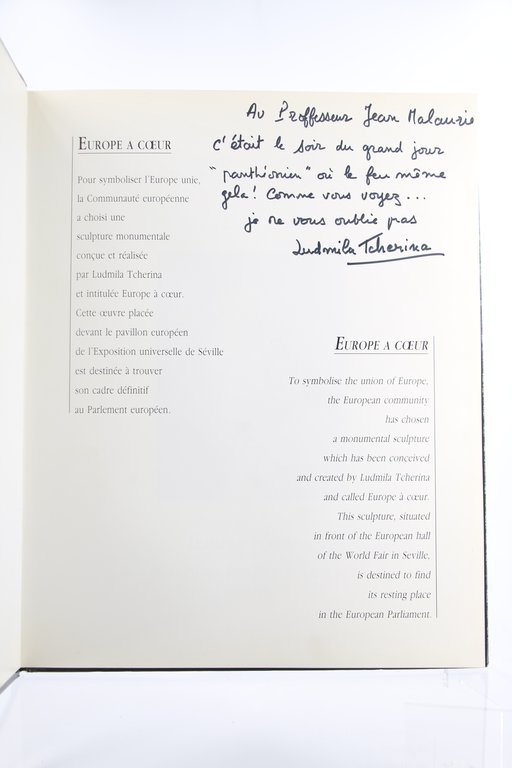 Au Proffesseur Jean Malaurie
c'était le soir du grand jour
"panthéonien" où le feu même
gela! Comme vous voyez...
je ne vous oublie pas
Ludmila Tcherina
EUROPE A CŒUR
Pour symboliser l'Europe unie,
la Communauté européenne
a choisi une
sculpture monumentale
conçue et réalisée
par Ludmila Tcherina
et intitulée Europe à cœur.
Cette œuvre placée
devant le pavillon européen
de l'Exposition universelle de Séville
est destinée à trouver
son cadre définitif
au Parlement européen.
EUROPE A CŒUR
To symbolise the union of Europe,
the European community
has chosen
a monumental sculpture
which has been conceived
and created by Ludmila Tcherina
and called Europe à cœur.
This sculpture, situated
in front of the European hall
of the World Fair in Seville,
is destined to find
its resting place
in the European Parliament.